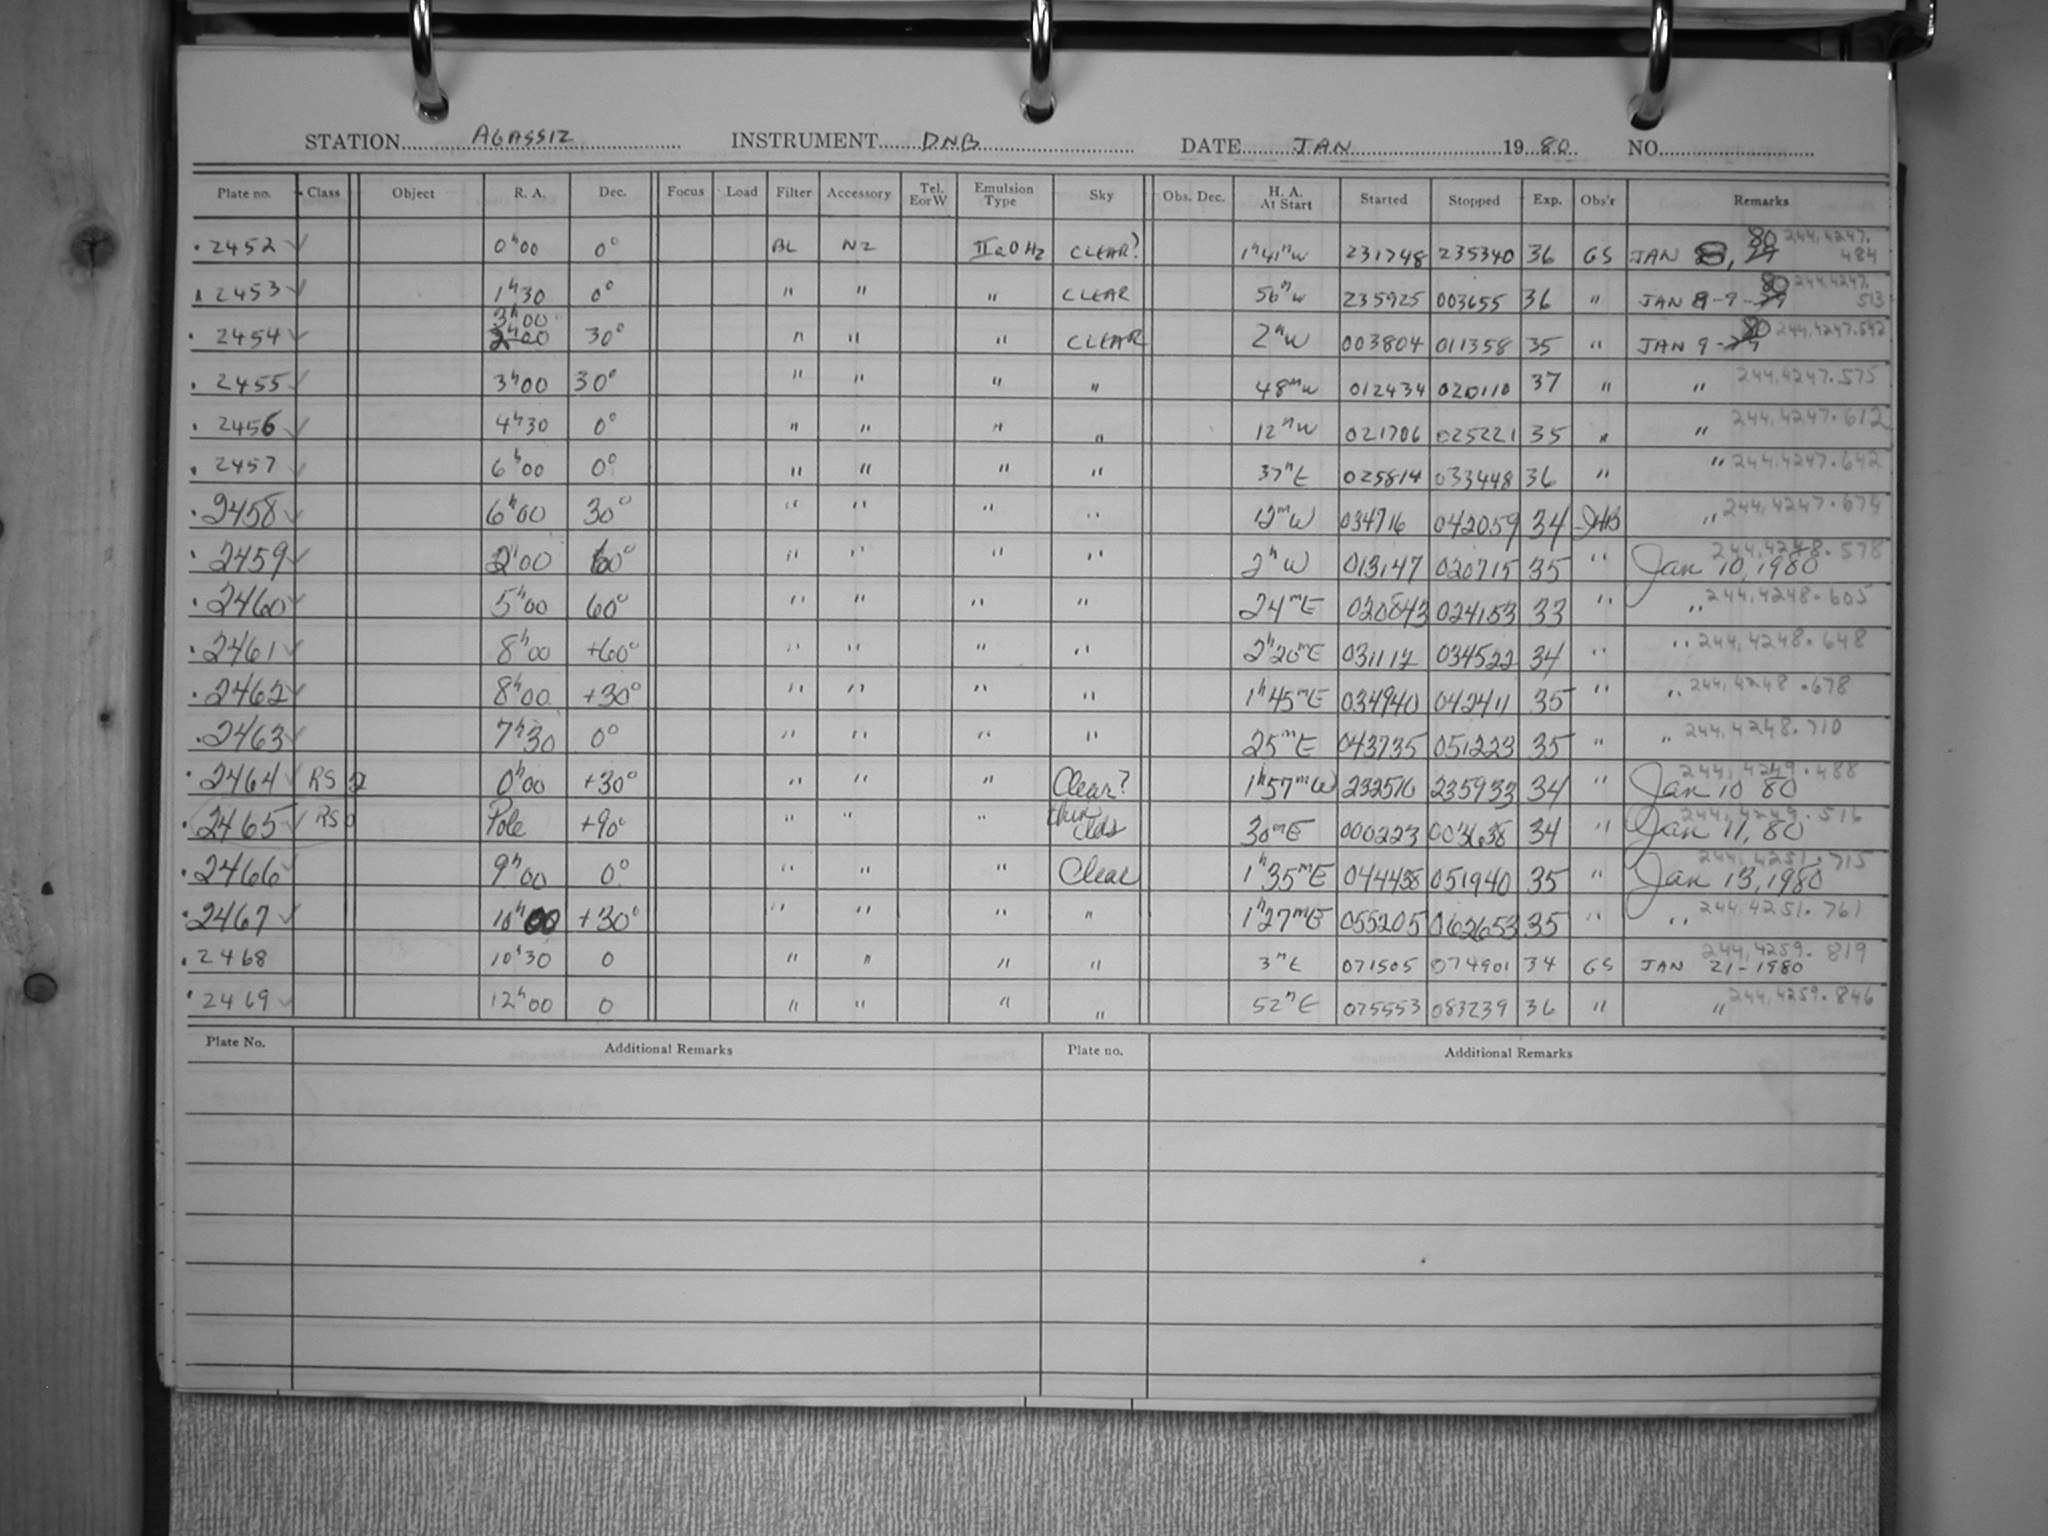 STATION AGASSIZ INSTRUMENT DNB DATE JAN 1980 NO.
Plate no. Class Object R. A. Dec. Focus Load Filter Accessory Tel. E or W Emulsion Type Sky Obs. Dec. H. A. At Start Started Stopped Exp. Obs'r Remarks
2452 ✓ 0h00 0° BL N2 IIaO H2 CLEAR? 1h41m W 231748 235340 36 GS JAN 8, 80 244,4247.484
2453 ✓ 1h30 0° " " " CLEAR 56m W 235925 003655 36 " JAN 8-9-80 244,4247.513
2454 ✓ 3h00 30° " " " CLEAR 2h W 003804 011358 35 " JAN 9-80 244,4247.542
2455 ✓ 3h00 30° " " " " 48m W 012434 020110 37 " " 244,4247.575
2456 ✓ 4h30 0° " " " " 12m W 021706 025221 35 " " 244,4247.612
2457 ✓ 6h00 0° " " " " 37m E 025814 033448 36 " " 244,4247.642
2458 ✓ 6h00 30° " " " " 12m W 034716 042059 34 JHB " 244,4247.674
2459 ✓ 2h00 60° " " " " 2h W 013147 020715 35 " Jan 10, 1980 244,4248.578
2460 ✓ 5h00 60° " " " " 24m E 020843 024153 33 " " 244,4248.605
2461 ✓ 8h00 +60° " " " " 2h20m E 031112 034522 34 " " 244,4248.648
2462 ✓ 8h00 +30° " " " " 1h45m E 034940 042411 35 " " 244,4248.678
2463 ✓ 7h30 0° " " " " 25m E 043735 051223 35 " " 244,4248.710
2464 ✓ RS 0h00 +30° " " " Clear? 1h57m W 232516 235933 34 " Jan 10 80 244,4249.488
2465 ✓ RS Pole +90° " " " thin clds 30m E 000223 003638 34 " Jan 11, 80 244,4249.516
2466 ✓ 9h00 0° " " " Clear 1h35m E 044438 051940 35 " Jan 13, 1980 244,4251.715
2467 ✓ 10h00 +30° " " " " 1h27m E 055205 062653 35 " " 244,4251.761
2468 10h30 0 " " " " 3m E 071505 074901 34 GS JAN 21-1980 244,4259.819
2469 ✓ 12h00 0 " " " " 52m E 075553 083239 36 " " 244,4259.846
Plate No. Additional Remarks Plate no. Additional Remarks